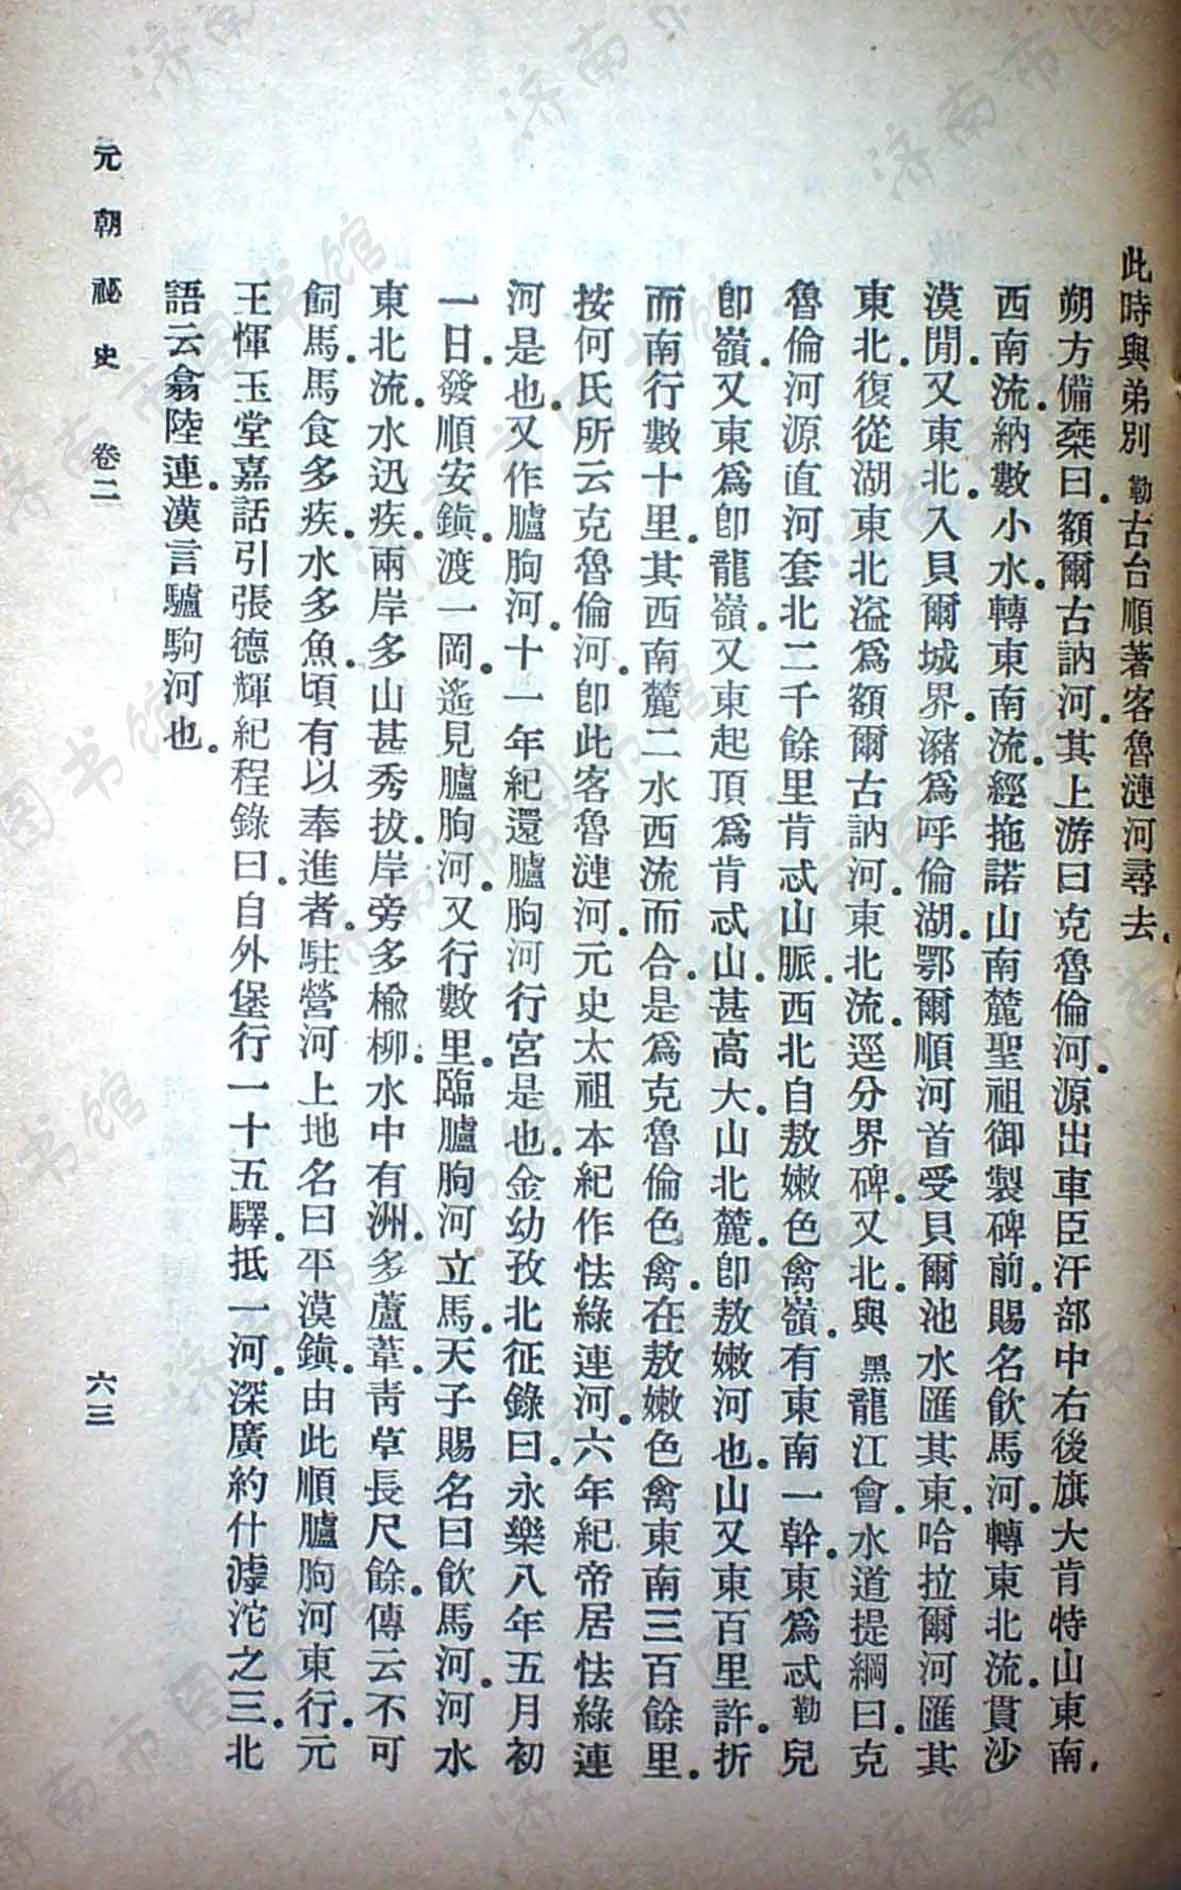 此時與弟別勒古台順著客魯漣河尋去、
朔方備乘曰。額爾古訥河。其上游曰克魯倫河。源出車臣汗部中右後旗大肯特山東南、
西南流。納數小水。轉東南流。經拖諾山南麓聖祖御製碑前。賜名飲馬河。轉東北流。貫沙
漠閒。又東北。入貝爾城界。瀦爲呼倫湖。鄂爾順河首受貝爾池水匯其東。哈拉爾河匯其
東北。復從湖東北溢爲額爾古訥河。東北流。逕分界碑。又北。與黑龍江會。水道提綱曰。克
魯倫河源直河套北二千餘里肯忒山脈。西北自敖嫩色禽嶺。有東南一幹。東爲忒勒兒
卽嶺。又東爲卽龍嶺。又東起頂爲肯忒山。甚高大。山北麓。卽敖嫩河也。山又東百里許。折
而南行數十里。其西南麓二水西流而合。是爲克魯倫色禽。在敖嫩色禽東南三百餘里。
按何氏所云克魯倫河。卽此客魯漣河。元史太祖本紀作怯綠連河。六年紀帝居怯綠連
河是也。又作臚朐河。十一年紀還臚朐河行宮是也。金幼孜北征錄曰。永樂八年五月初
一日。發順安鎮。渡一岡。遙見臚朐河。又行數里。臨臚朐河立馬。天子賜名曰飮馬河。河水
東北流。水迅疾。兩岸多山甚秀拔。岸旁多楡柳。水中有洲。多蘆葦。靑草長尺餘。傳云不可
飼馬。馬食多疾。水多魚。頃有以奉進者。駐營河上地名曰平漠鎮。由此順臚朐河東行。元
王惲玉堂嘉話引張德輝紀程錄曰。自外堡行一十五驛。抵一河。深廣約什滹沱之三。北
語云翕陸連。漢言驢駒河也。
元朝祕史 卷二 六三
济南市图书馆